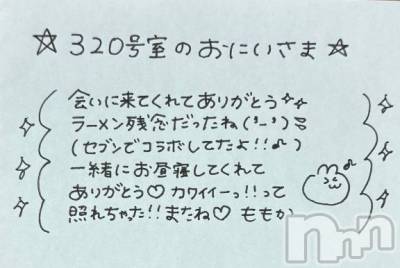 ☆320号室のおにいさま☆
会いに来てくれてありがとう✧✧
ラーメン残念だったね('-')
(セブンでコラボしてたよ!!♪)
一緒にお昼寝してくれて
ありがとう♡ カワイイー!!って
照れちゃった!!またね♡ ももか
nmn